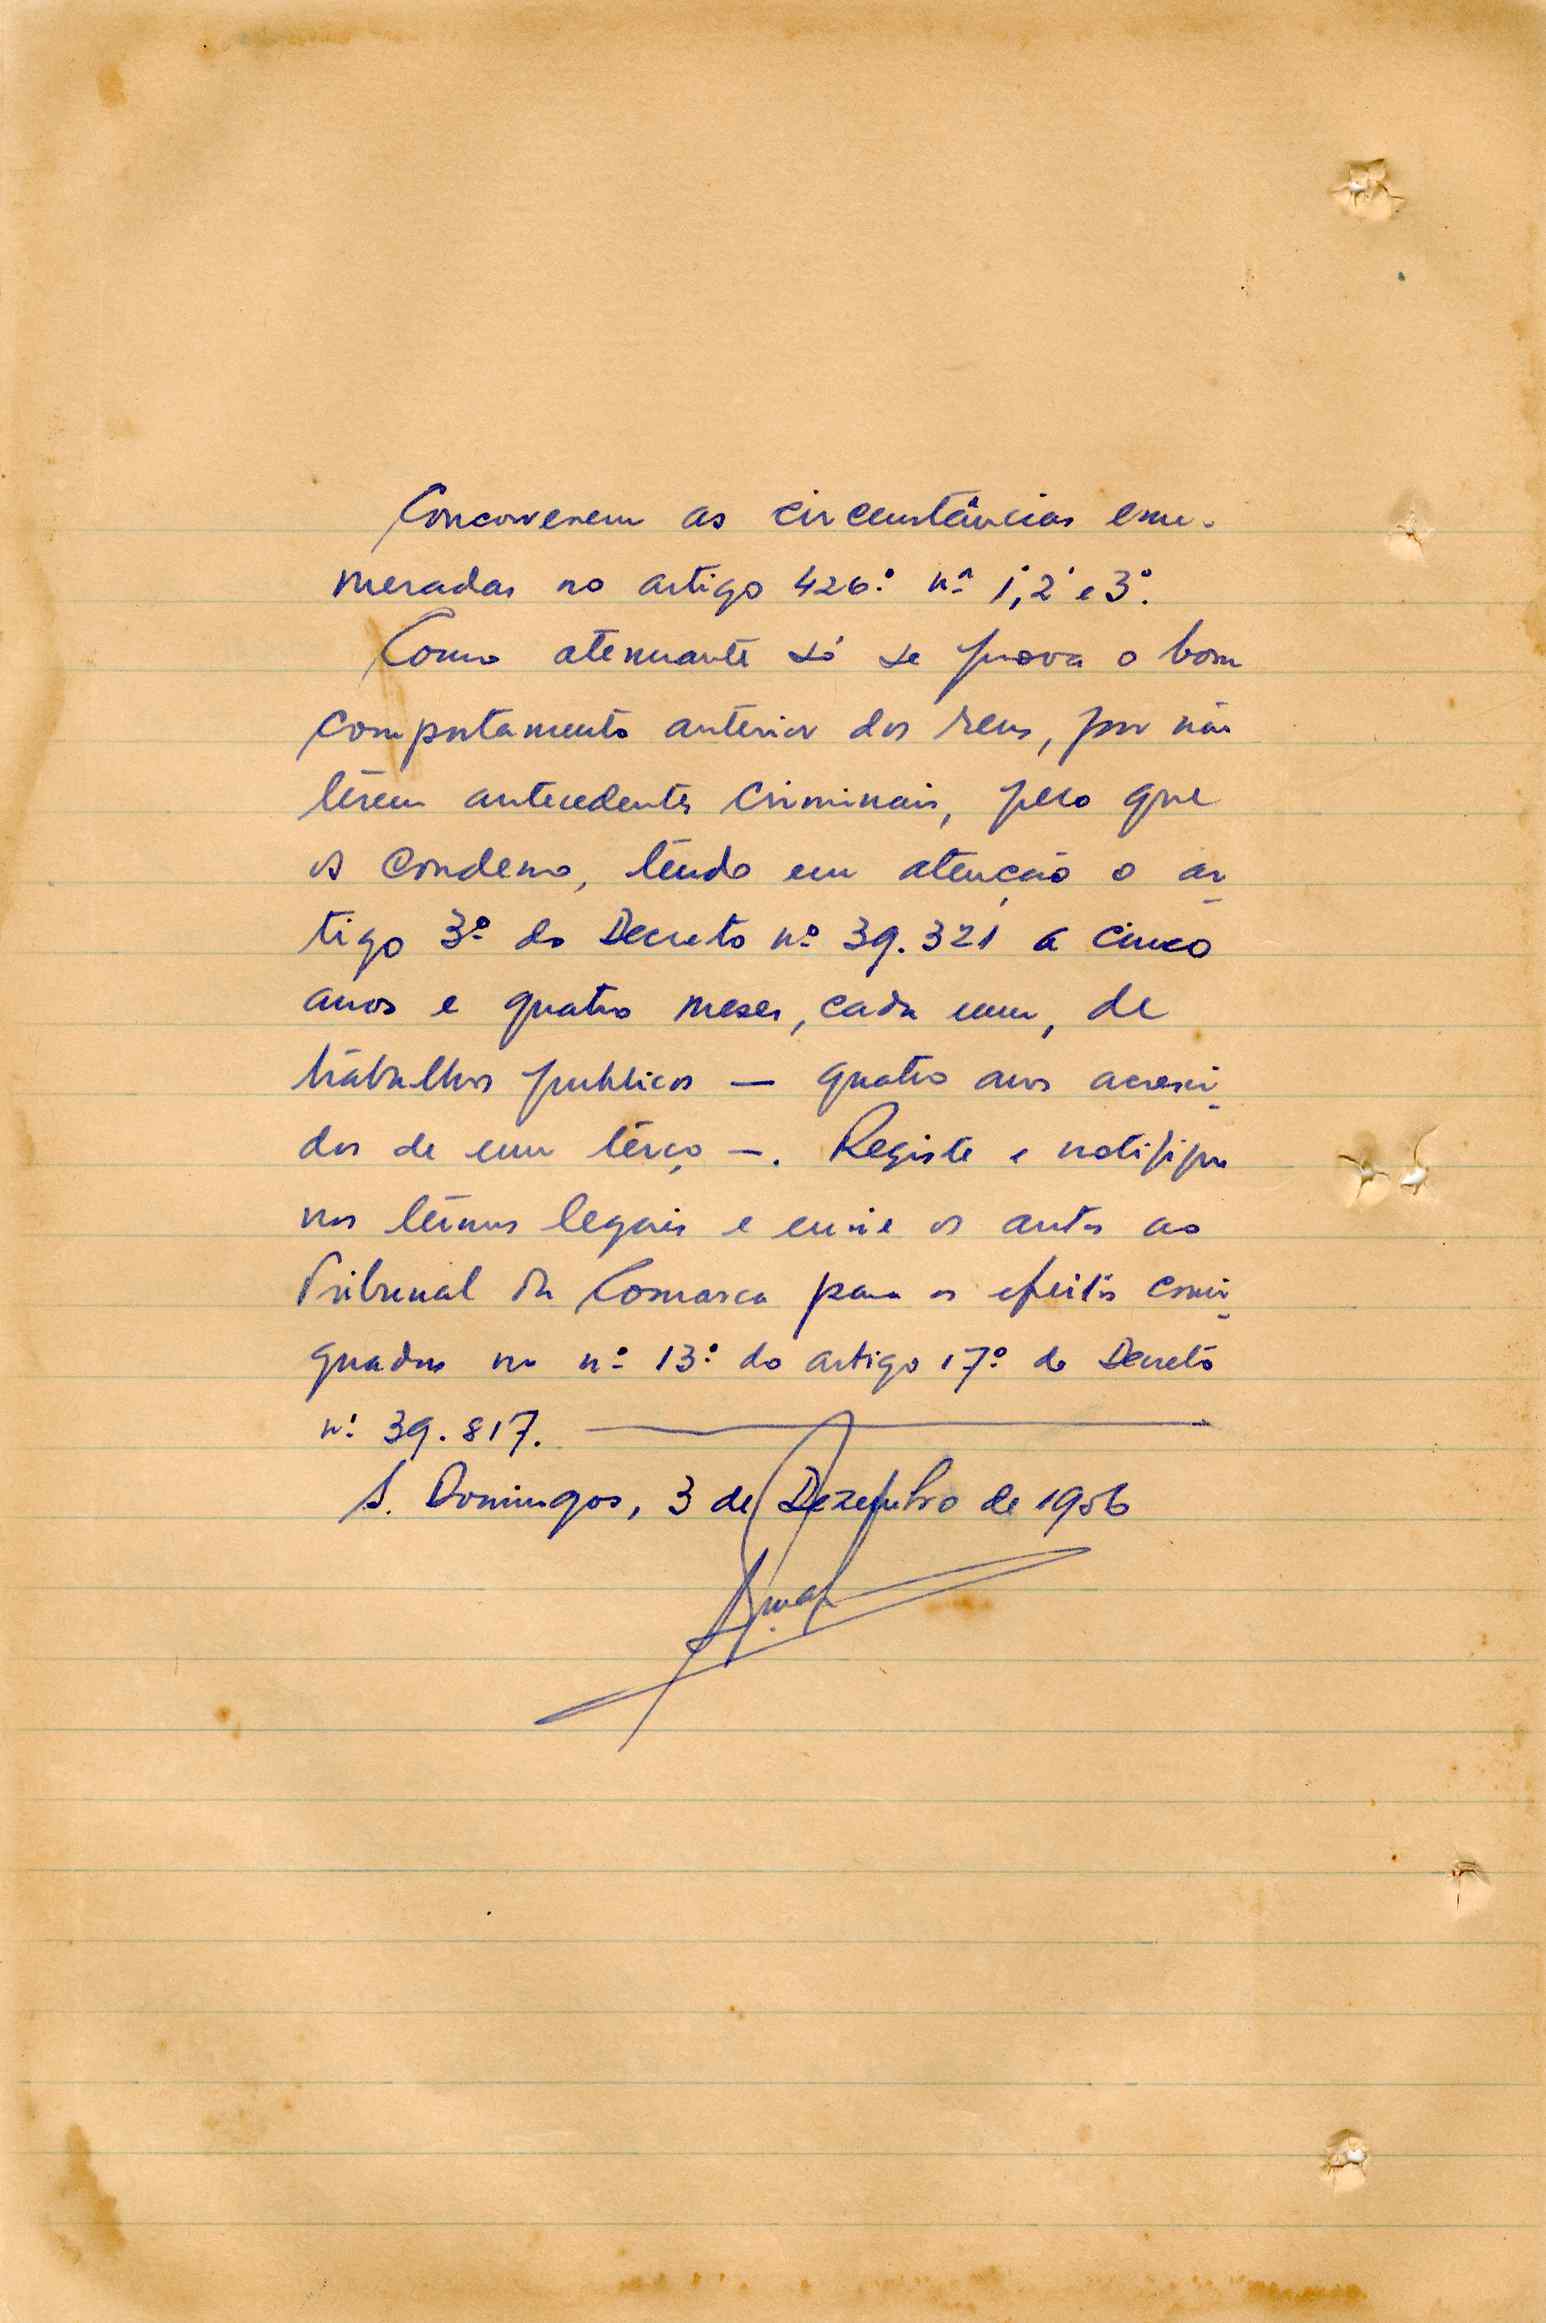 Concorrerem as circunstâncias enu-
meradas no artigo 426.º nº 1º, 2º e 3º.
Como atenuante só se prova o bom
comportamento anterior dos reus, por não
têrem antecedentes criminais, pelo que
os condeno, tendo em atenção o ar-
tigo 3º do Decreto nº 39.321 a cinco
anos e quatro meses, cada um, de
trabalhos publicos — quatro anos acresci-
dos de um têrço —. Registe e notifique
nos têrmos legais e envie os autos ao
Tribunal da Comarca para os efeitos consi-
gnados no nº 13º do artigo 17º do Decreto
nº 39.817.
S. Domingos, 3 de Dezembro de 1956